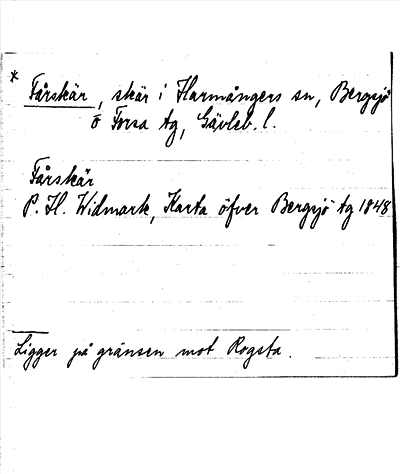 * Fårskär, skär i Harmångers sn, Bergsjö
o Forsa tg, Gävleb. l.
Fårskär
P. H. Widmark, Karta öfver Bergsjö tg 1848
Ligger på gränsen mot Rogsta.